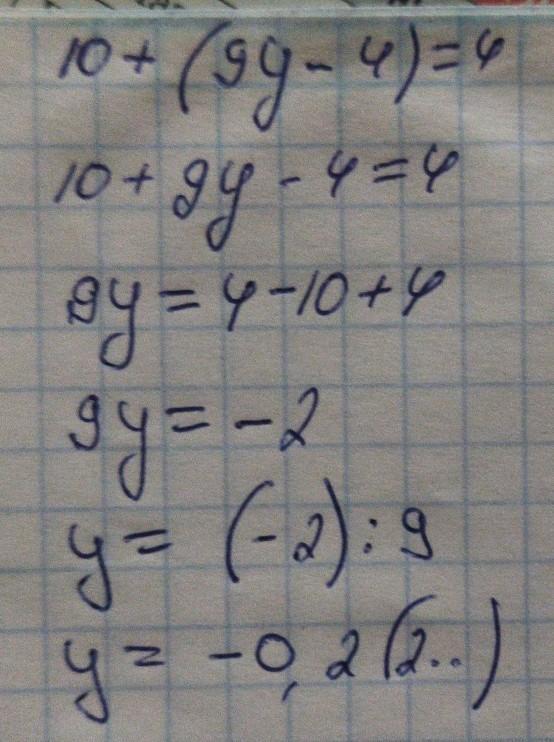 10 + (9y - 4) = 4
10 + 9y - 4 = 4
9y = 4 - 10 + 4
9y = - 2
y = (- 2) : 9
y = - 0, 2 (2..)